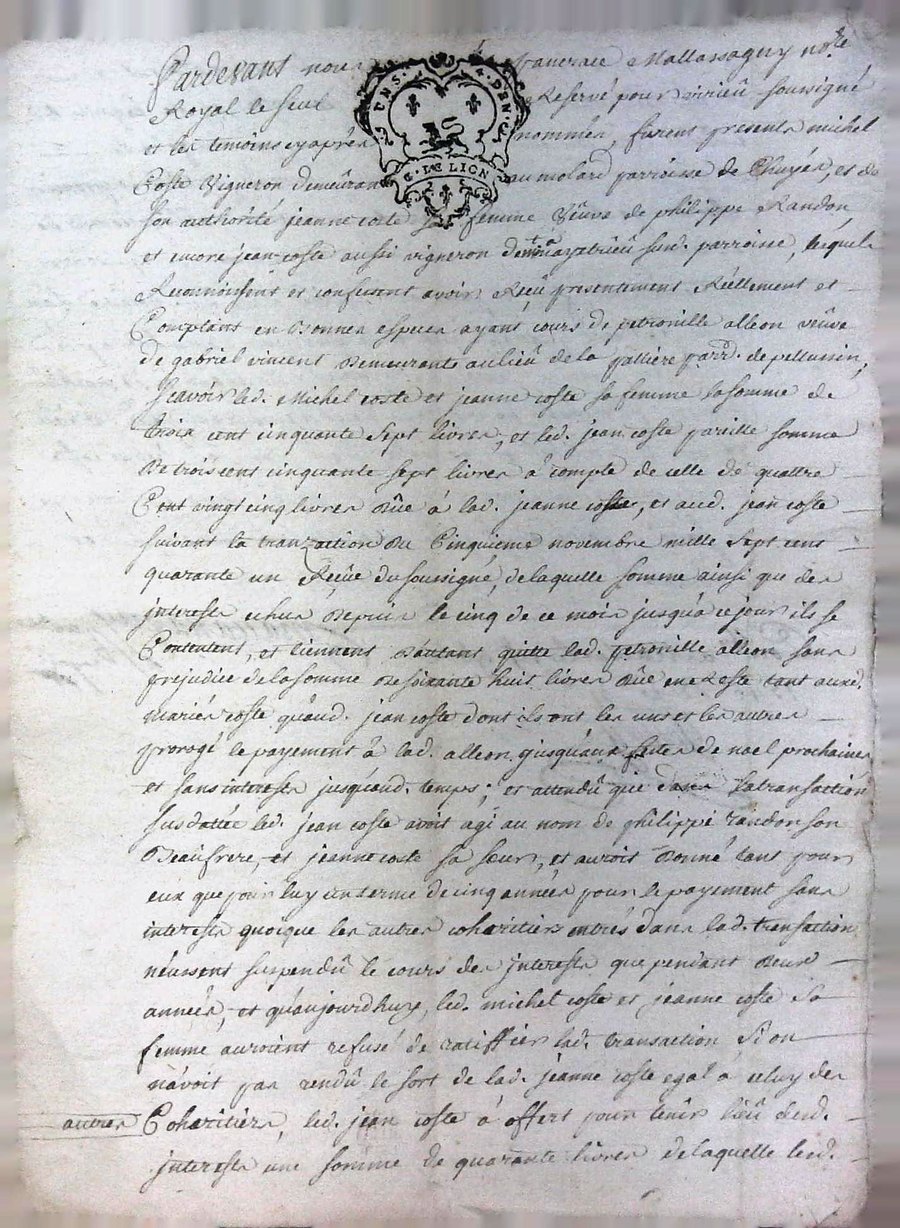 Pardevant nous Mallassagny no.re
Royal le seul Reservé pour virieû soussigné
et les temoins cy aprés nommés, furent presents michel
Coste Vigneron demeurant au molard parroisse de Chuyer, et de
son authorité jeanne coste sa femme Veûve de philippe Randon
et encore jean coste aussi vigneron dem.t susd. parroisse, lesquels
Reconnoissent et confessent avoir Reçû presentement Réellement et
Comptant en Bonnes especes ayant cours de petronille alleon veûve
de gabriel vincent Demeurante au lieû de la pallière parr. de pellussin,
scavoir led. Michel coste et jeanne coste sa femme la somme de
trois cent cinquante sept livres, et led. jean coste pareille somme
De trois cent cinquante sept livres a compte de celle de quattre
Cent vingt cinq livres Dûe à lad. jeanne coste, et aud. jean coste
suivant la tranzaction du Cinquieme novembre mille sept cent
quarante un Reçûe du soussigné, de laquelle somme ainsi que des
interests echus Depuis le cinq de ce mois jusqu'a ce jour ils se
Contentent, et tiennent D'autant quitte lad. petronille alleon sans
prejudice de la somme De soixante huit livres Dûe en Reste tant auxd.
mariés coste qu'aud. jean coste dont ils ont les uns et les autres
prorogé le payement à lad. alleon jusqu'aux fêtes de noel prochaines
et sans interests jusqu'aud. temps; et attendû que dans la transaction
susdattée led. jean coste avoit agi au nom de philippe randon son
Beaufrere, et jeanne coste sa soeur, et auroit Donné tant pour
eux que pour luy un terme de cinq années pour le payement sans
interests quoique les autres coheritiers entrés dans lad. transaction
n'eussent suspendû le cours des interests que pendant Deux
années, et qu'aujourdhuy, led. michel coste et jeanne coste sa
femme auroient refusé de ratiffier lad. transaction Si on
n'avoit pas rendû le sort de lad. jeanne coste egal a celuy des
autres Coheritiers, led. jean coste à offert pour tenir lieû desd.
interests une somme de quarante livres de laquelle led.
UNS. 4. DEN.
G. DE LION